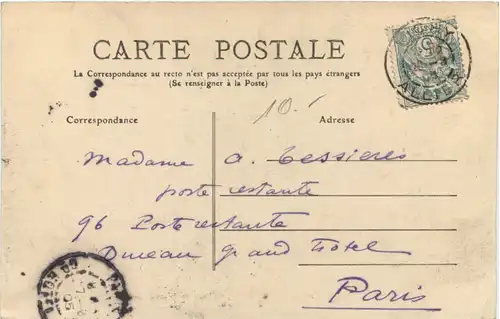 CARTE POSTALE
La Correspondance au recto n'est pas acceptée par tous les pays étrangers
(Se renseigner à la Poste)
10.-
Correspondance
Adresse
Madame A. Tessieres
poste restante
96 Poste restante
Bureau grand hotel
Paris
ALLIER